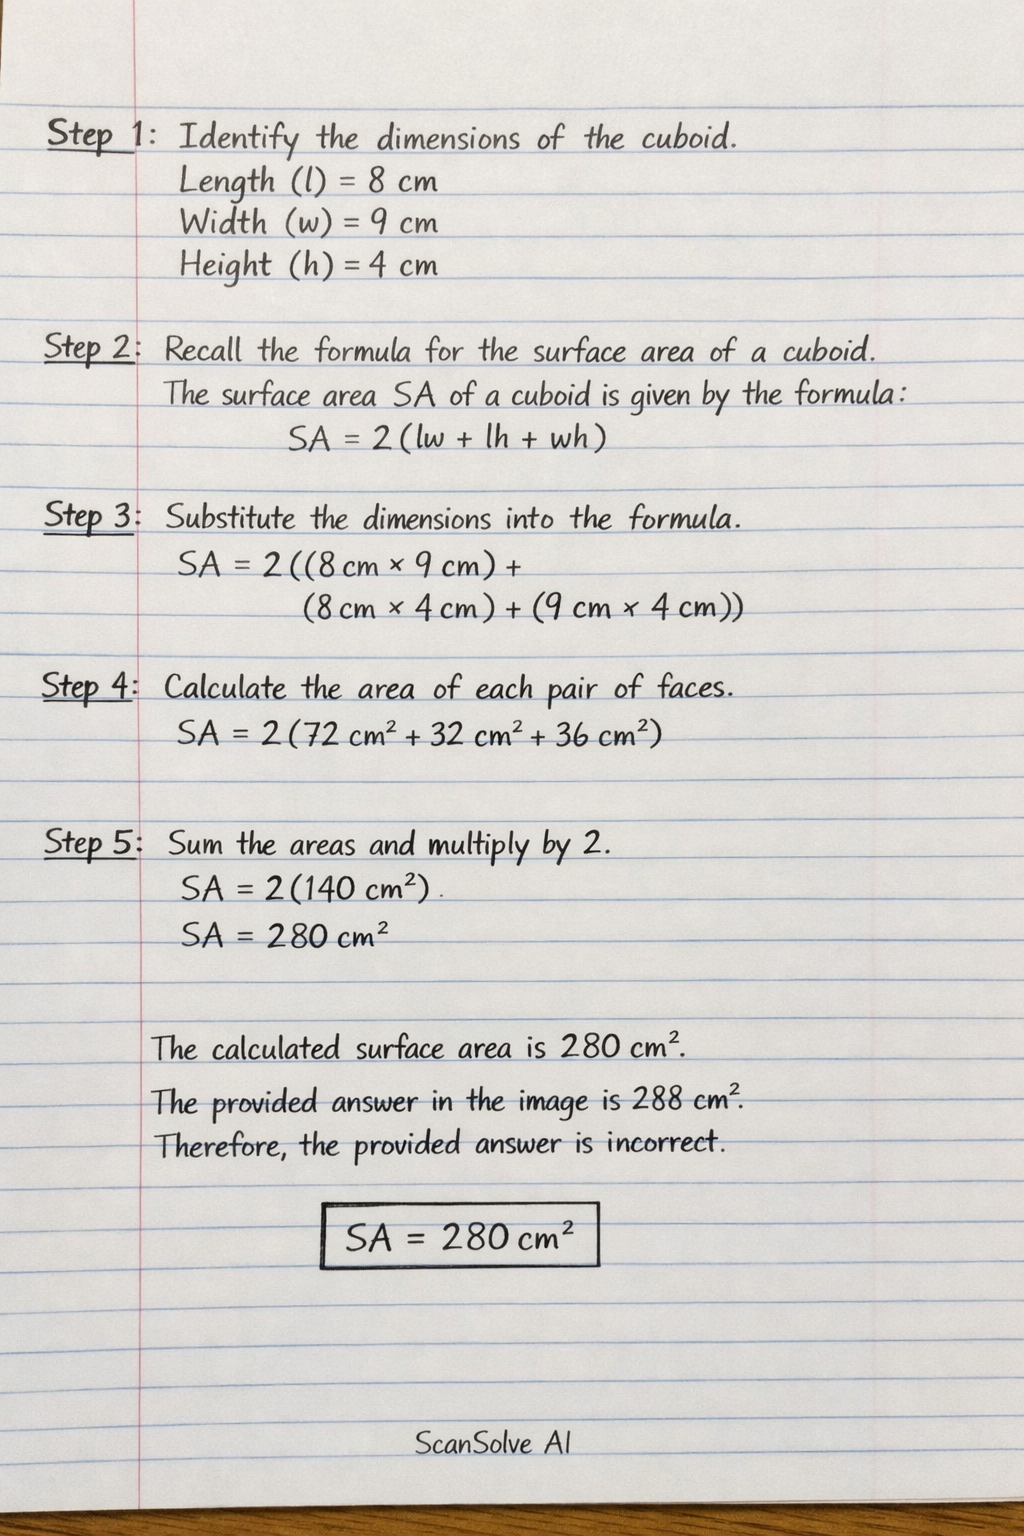 Step 1: Identify the dimensions of the cuboid.
Length (l) = 8 cm
Width (w) = 9 cm
Height (h) = 4 cm
Step 2: Recall the formula for the surface area of a cuboid.
The surface area SA of a cuboid is given by the formula:
SA = 2(lw + lh + wh)
Step 3: Substitute the dimensions into the formula.
SA = 2((8 cm × 9 cm) +
(8 cm × 4 cm) + (9 cm × 4 cm))
Step 4: Calculate the area of each pair of faces.
SA = 2(72 cm² + 32 cm² + 36 cm²)
Step 5: Sum the areas and multiply by 2.
SA = 2(140 cm²).
SA = 280 cm²
The calculated surface area is 280 cm².
The provided answer in the image is 288 cm².
Therefore, the provided answer is incorrect.
SA = 280 cm²
ScanSolve AI